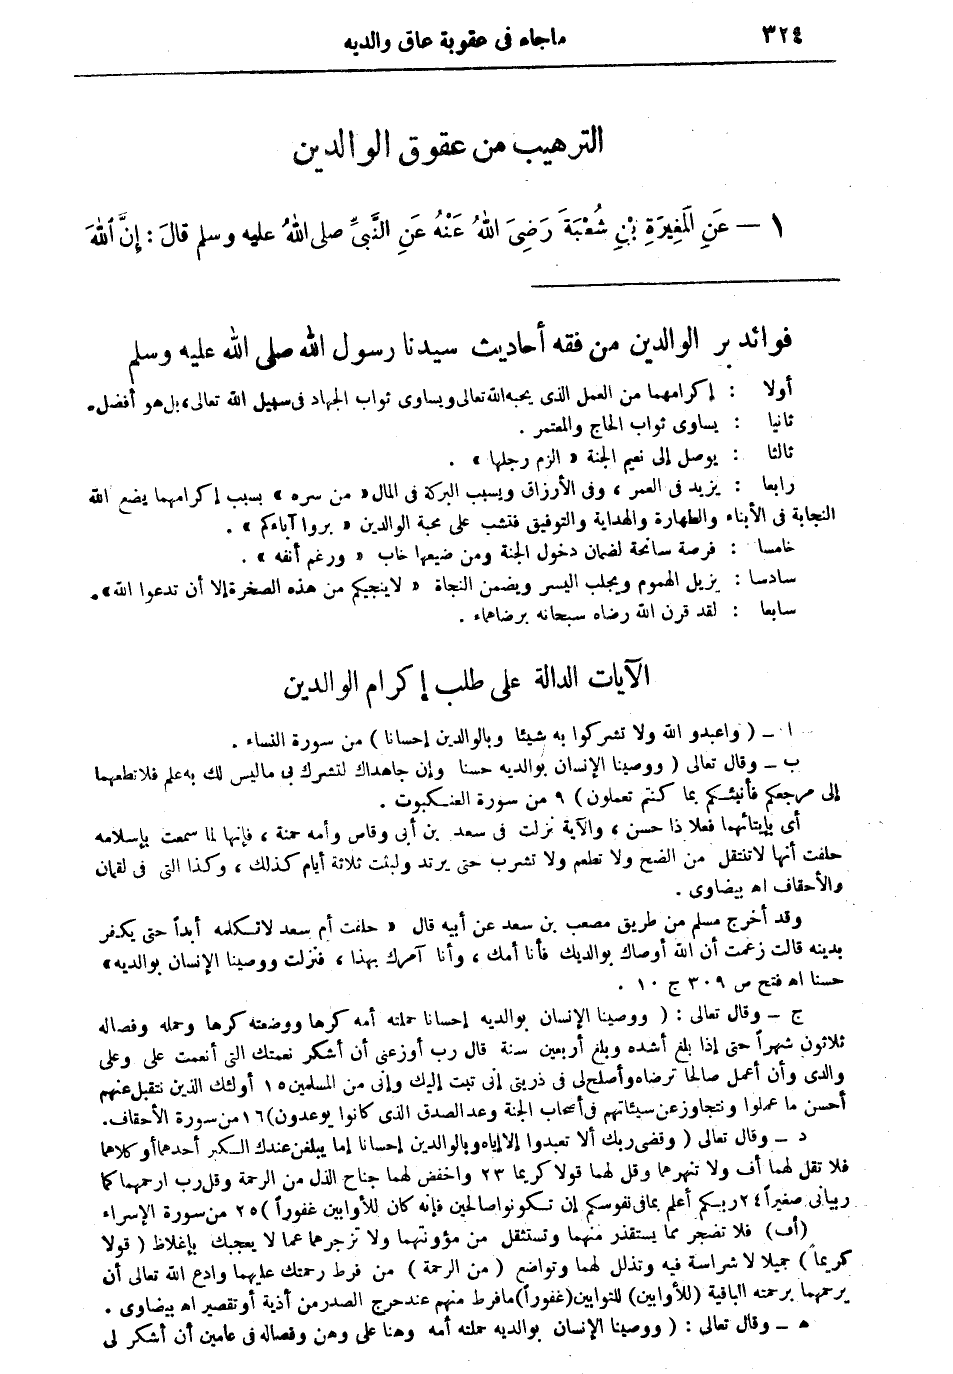 ٣٢٤
ماجاء فى عقوبة عاق والديه
الترهيب من عقوق الوالدين
١ — عَنِ المُغِيرَةِ بْنِ شُعْبَةَ رَضِىَ اللهُ عَنْهُ عَنِ النَّبِىِّ صلى اللهُ عليه وسلم قالَ : إِنَّ اللهَ
فوائد بر الوالدين من فقه أحاديث سيدنا رسول الله صلى الله عليه وسلم
أولا : إكرامهما من العمل الذى يحبه الله تعالى ويساوى ثواب الجهاد فى سبيل الله تعالى، بل هو أفضل.
ثانيا : يساوى ثواب الحاج والمعتمر .
ثالثا : يوصل إلى نعيم الجنة « الزم رجلها » .
رابعا : يزيد فى العمر ، وفى الأرزاق ويسبب البركة فى المال « من سره » بسبب إكرامهما يضع الله
النجابة فى الأبناء والطهارة والهداية والتوفيق فتشب على محبة الوالدين « بروا آباءكم » .
خامسا : فرصة سانحة لضمان دخول الجنة ومن ضيعها خاب « ورغم أنفه » .
سادسا : يزيل الهموم ويجلب اليسر ويضمن النجاة « لاينجيكم من هذه الصخرة إلا أن تدعوا الله».
سابعا : لقد قرن الله رضاه سبحانه برضاهماء .
الآيات الدالة على طلب إكرام الوالدين
ا ــ ( واعبدو الله ولا تشركوا به شيئا وبالوالدين إحسانا ) من سورة النساء .
ب ــ وقال تعالى ( ووصينا الإنسان بوالديه حسنا وإن جاهداك لتشرك بى ماليس لك به علم فلاتطعهما
إلى مرجعكم فأنبئكم بما كنتم تعملون ) ٩ من سورة العنكبوت .
أى بإيتائهما فعلا ذا حسن ، والآية نزلت فى سعد بن أبى وقاص وأمه حمنة ، فإنها لما سمعت بإسلامه
حلفت أنها لاتنتقل من الضح ولا تطعم ولا تشرب حتى يرتد ولبثت ثلاثة أيام كذلك ، وكذا التى فى لقمان
والأحقاف اه بيضاوى .
وقد أخرج مسلم من طريق مصعب بن سعد عن أبيه قال « حلفت أم سعد لاتكلمه أبداً حتى يكفر
بدينه قالت زعمت أن الله أوصاك بوالديك فأنا أمك ، وأنا آمرك بهذا ، فنزلت ووصينا الإنسان بوالديه»
حسنا اه فتح ص ٣٠٩ ج ١٠ .
ج ــ وقال تعالى : ( ووصينا الإنسان بوالديه إحسانا حملته أمه كرها ووضعته كرها وحمله وفصاله
ثلاثون شهراً حتى إذا بلغ أشده وبلغ أربعين سنة قال رب أوزعنى أن أشكر نعمتك التى أنعمت على وعلى
والدى وأن أعمل صالحا ترضاه وأصلح لى فى ذريتى إنى تبت إليك وإنى من المسلمين ١٥ أولئك الذين نتقبل عنهم
أحسن ما عملوا ونتجاوز عن سيئاتهم فى أصحاب الجنة وعد الصدق الذى كانوا يوعدون) ١٦ من سورة الأحقاف.
د ــ وقال تعالى ( وقضى ربك ألا تعبدوا إلا إياه وبالوالدين إحسانا إما يبلغن عندك الكبر أحدهما أو كلاهما
فلا تقل لهما أف ولا تنهرهما وقل لهما قولا كريما ٢٣ واخفض لهما جناح الذل من الرحمة وقل رب ارحمهما كما
ربيانى صغيراً ٢٤ ربكم أعلم بمافى نفوسكم إن تكونوا صالحين فإنه كان للأوابين غفوراً ) ٢٥ من سورة الإسراء
(أف) فلا تضجر مما يستقذر منهما وتستثقل من مؤونتهما ولا تزجرهما عما لا يعجبك بإغلاظ ( قولا
كريماً ) جميلا لا شراسة فيه وتذلل لهما وتواضع ( من الرحمة ) من فرط رحمتك عليهما وادع الله تعالى أن
يرحمهما برحمته الباقية (للأوابين) للتوابين (غفوراً) مافرط منهم عند حرج الصدر من أذية أو تقصير اه بيضاوى .
ه ــ وقال تعالى : ( ووصينا الإنسان بوالديه حملته أمه وهنا على وهن وفصاله فى عامين أن أشكر لى